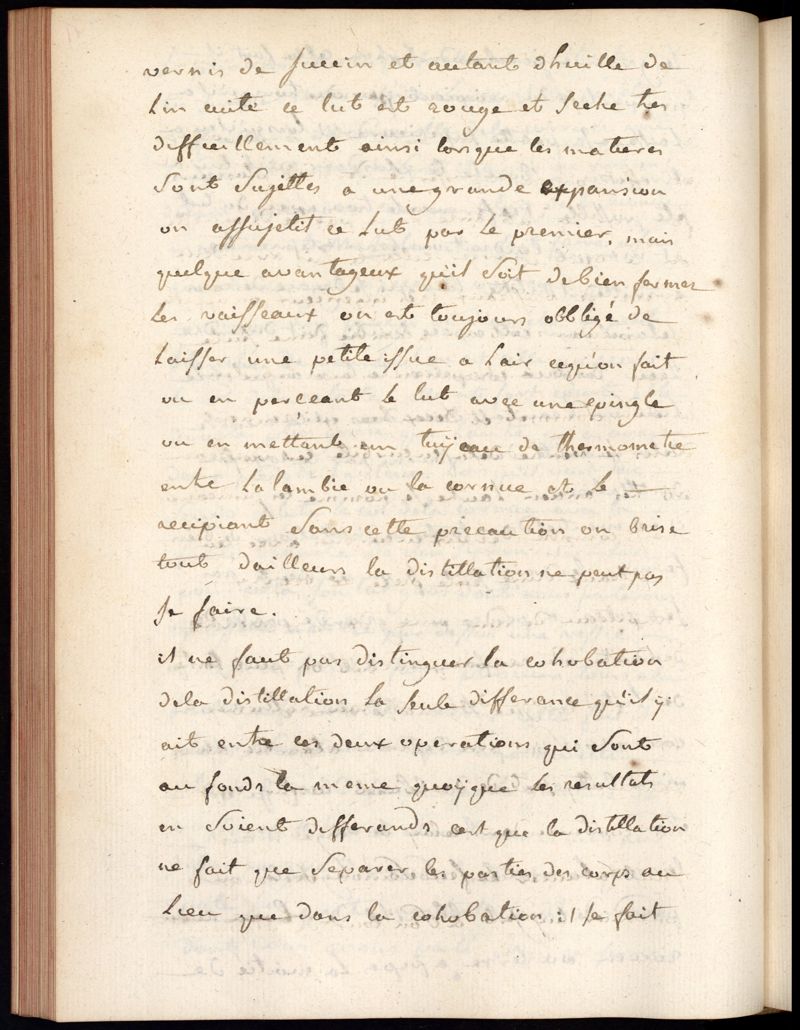 vernis de succin et autant d'huille de
Lin cuite ce lut est rouge et seche tres
difficillement ainsi lorsque les matieres
sont sujettes a une grande expansion
on assujetit ce Lut par le premier, mais
quelque avantageux qu'il soit de bien fermer
les vaisseaux on est toujours obbligé de
Laisser une petite issue a Lair cequ'on fait
ou en perceant le lut avec une epingle
ou en mettant un tuÿeau de thermometre
entre Lalambic ou la cornue et le
recipiant sans cette precaution on brise
tout d'ailleurs la distillation ne peut pas
se faire.
il ne faut pas distinguer la cohobation
dela distillation La seule differance qu'il ÿ
ait entre ces deux operations qui sont
au fonds la meme quoÿque les resultats
en soient differands c'est que la distillation
ne fait que separer les parties des corps au
Lieu que dans la cohobation il se fait